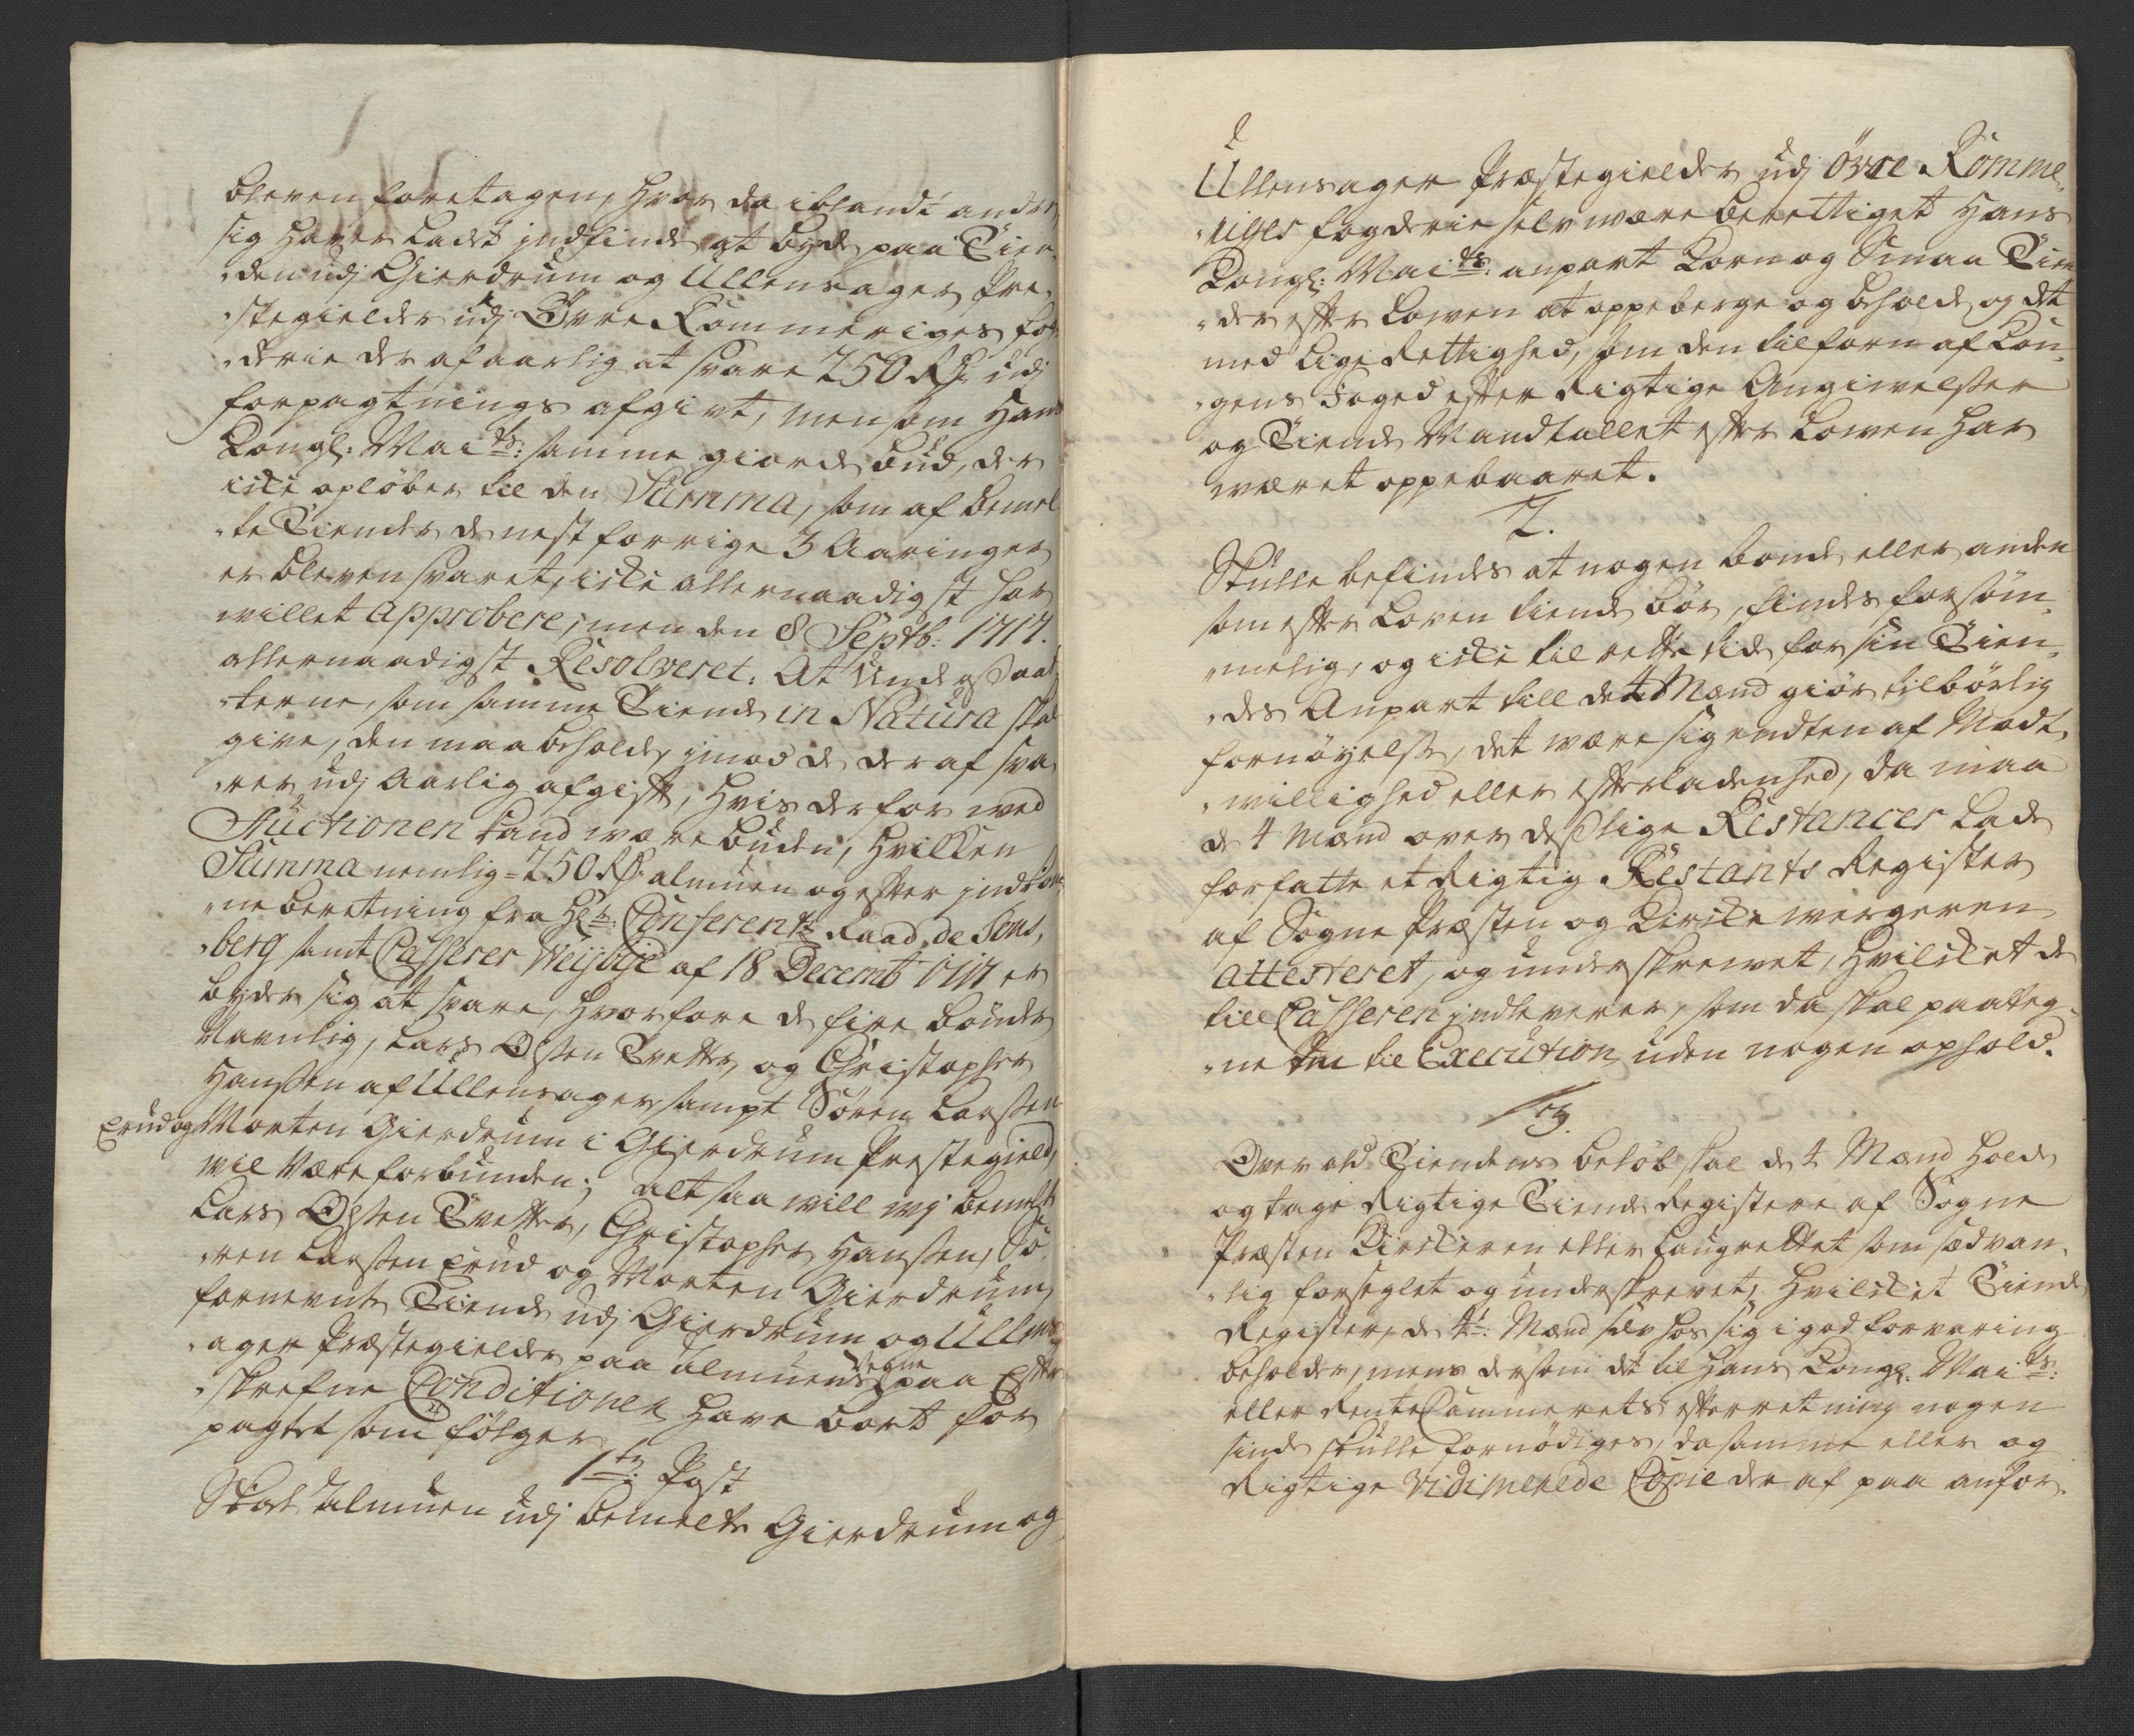 bleven foretagen, hvor da iblandt andre,
sig haver ladet indfinde at byde paa Tien„
„den udj Gierdrum og Ullensager Pre„
„stegielder udj Øvre Rommeriges fog„
„derie der af aarlig at svare 250 Rdr udj
forpagtnings afgivt, men som Hans
Kongl: Mai<sup>ts</sup>: samme giorde bud, der
icke opløber til den Summa, som af bemel
„te Tiender de nest forrige 3 Aaringer
er bleven svaret, icke allernaadigst har
villet approbere, men den 8 Septb: 1717.
allernaadigst Resolveret: At Undersaat„
„terne, som samme Tiende in Natura skal
give, den maa beholde, imod de deraf sva
„rer udj Aarlig afgift, hvis derfor ved
Auctionen kand være buden, hvilken
Summa nemlig = 250 Rdr almuen og efter indkom
„ne beretning fra Hr: Conferentz Raad de Tons„
„berg samt Casserer Weybye af 18 Decemb 1717 er
byder sig at svare, hvorfore de fire bønder
Navnlig, Lars Olssen Tvetter, og Christopher
Hanssen af Ullensager, sampt Søren Larssen
Erud og Morten Gierdrum i Gierdrum Prestegield,
vil være forbunden; alt saa will wj bemelte
Lars Olssen Tvetter, Christopher Hanssen, Sø„
„ren Larssen Erud og Morten Gierdrum,
fornevnte Tiende udj Gierdrum og Ullens„
„ager Præstegielder paa Almuens Vegne paa Efter
„skrefne Conditioner have bort for
pagtet som følger
1<sup>te</sup>: Post
Skal Almuen udj bemelte Gierdrum og
Ullensager Præstegielder udj øvre Romme„
„riges fogderie selv være berettiget Hans
Kongl: Mai<sup>ts</sup>: anpart Korn og Smaa Tien
„der efter Lowen at oppeberge og beholde, og det
med lige Rettighed, som den tilforn af Kon„
„gens Foged efter Rigtige Angivelsser
og Tiende Mandtallet efter Lowen har
været oppebaaret.
2.
Skulle befindes at nogen bonde, eller anden
som efter Loven tiende bør, findes forsøm„
„melig, og icke til rette tid for sin Tien„
„des Anpart till de 4 Mænd giør tilbørlig
fornøyelse, det være sig endten af Modt„
„willighed eller efterladenhed, da maa
de 4 Mænd over desslige Restancer lade
forfatte et Rigtig Restants Register
af Sogne Præsten og Kircke wergeren
attesteret, og underskrewet, hvilcket de
till Casseren indleverer, som da skal paateg„
„ne det til Execution uden nogen ophold.
3.
Over ald Tiendens beløb skal de 4 Mænd holde
og tage Rigtige Tiende Registere af Sogne
Præsten Kirckeren eller Laugrettet som sædvan„
„lig forseglet og underskrevet, hvilcket Tiende
Register, de 4<sup>r</sup>: Mænd selv hos sig i god forvaring
beholder, mens dersom det til Hans Kongl. Mai<sup>ts</sup>:
eller Rente Cammerets efterretning nogen
sinde skulle fornødiges, da samme eller og
Rigtige Vidimerede Copie der af paa anfor„